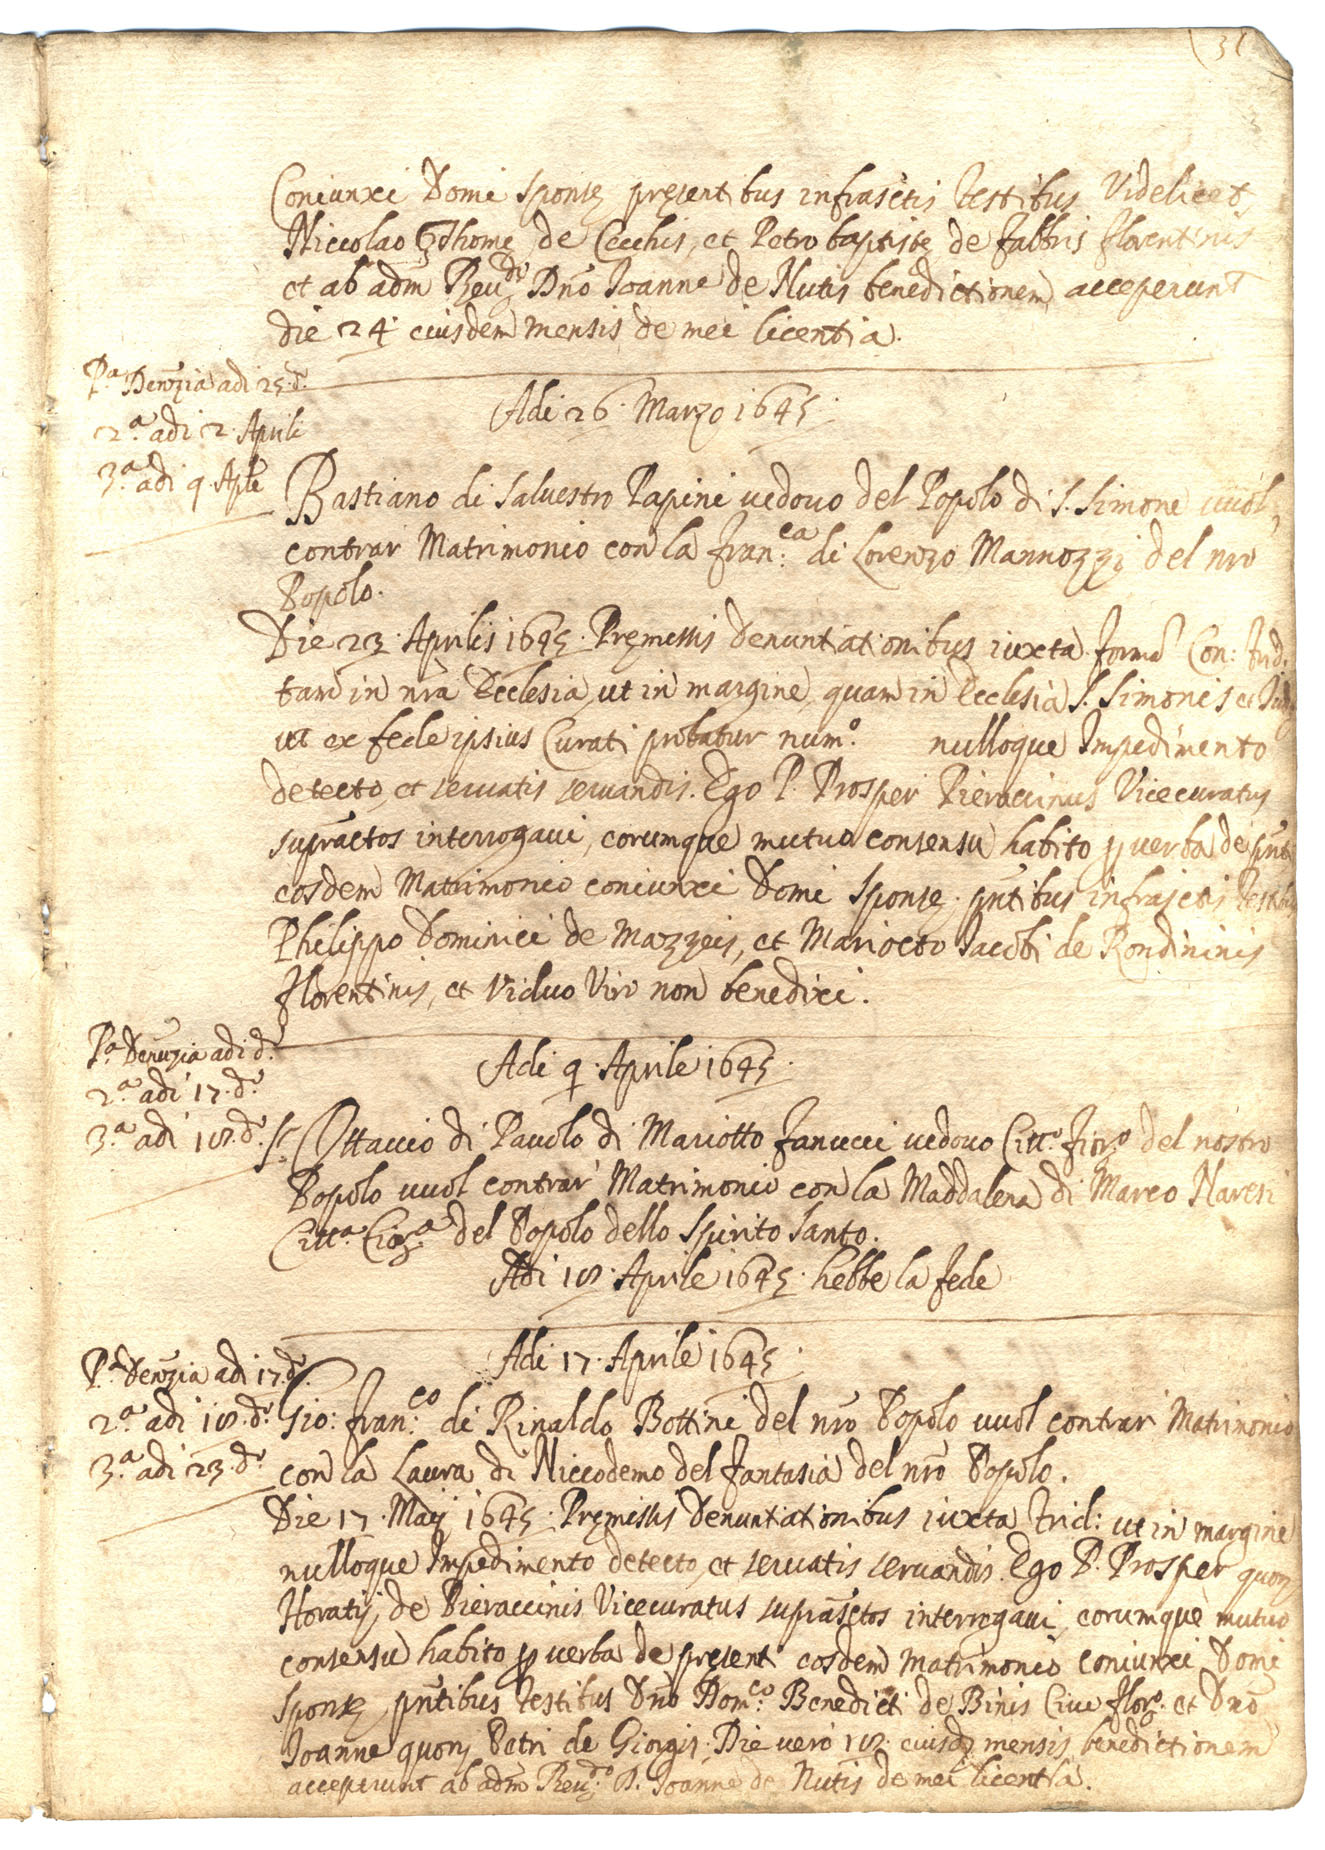 31
Coniunxi Domi sponsę pręsentibus infrasctis testibus Videlicet
Niccolao Thomę de Cecchis, et Petro baptistę de fabbris florentinis
et ab adm Reu.do Dno Ioanne de Nutis benedictionem acceperunt
die 24 eiusdem mensis de mei licentia.
P.a Denũzia adi 25 d.o
2.a adi 2 Aprili
3.a adi 9 Aple
Adi 26 Marzo 1645
Bastiano di Saluestro Papini uedouo del Popolo di S. Simone uuol
contrar Matrimonio con la Fran.ca di Lorenzo Mannozzi del nro
Popolo.
Die 23 Aprilis 1645 Pręmissis Denuntiationibus iuxta formã Con: Trid.
tam in nrã Ecclesia, ut in margine, quam in Ecclesia S. Simonis et
ut ex fede ipsius Curati probatur num.o nulloque Impedimento
detecto, et seruatis seruandis. Ego P. Prosper Pieraccinus Vicecuratus
suprãctos interrogaui, eorumque mutuo consensu habito p uerba de pñti
eosdem Matrimonio coniunxi Domi sponsę pñtibus infrasctis testibus
Philippo Dominici de Mazzeis, et Mariotto Iacobi de Rondininis
florentinis, et Viduo Viro non benedixi.
P.a Denũzia adi d.o
2.a adi 17 d.o
3.a adi 18 d.o
Adi 9 Aprile 1645
Sr Ottauio di Pauolo di Mariotto Fanucci uedouo Citt.o Fior.o del nostro
Popolo uuol contrar Matrimonio con la Maddalena di Marco Naresi
Citt.a Fior.a del Popolo dello Spirito Santo.
Adi 18 Aprile 1645 hebbe la fede
P.a Denũzia adi 17 d.o
2.a adi 18 d.o
3.a adi 23 d.o
Adi 17 Aprile 1645
Gio: Fran.co di Rinaldo Bottini del nrõ Popolo uuol contrar Matrimonio
con la Laura di Niccodemo del Fantasia del nrõ Popolo.
Die 17 Maij 1645 Pręmissis Denuntiationibus iuxta Trid: ut in margine
nulloque Impedimento detecto, et seruatis seruandis. Ego P. Prosper quom
Horatij de Pieraccinis Vicecuratus suprãsctos interrogaui, eorumque mutuo
consensu habito p uerba de pręsenti eosdem matrimonio coniunxi Domi
sponsę pñtibus testibus Dno Dom.co Benedicti de Binis Ciue flor.o et Dno
Joanne quom Petri de Giorgis. Die uero 18 eiusdem mensis benedictionem
acceperunt ab adm Reu.do D. Ioanne de Nutis de mei licentia.